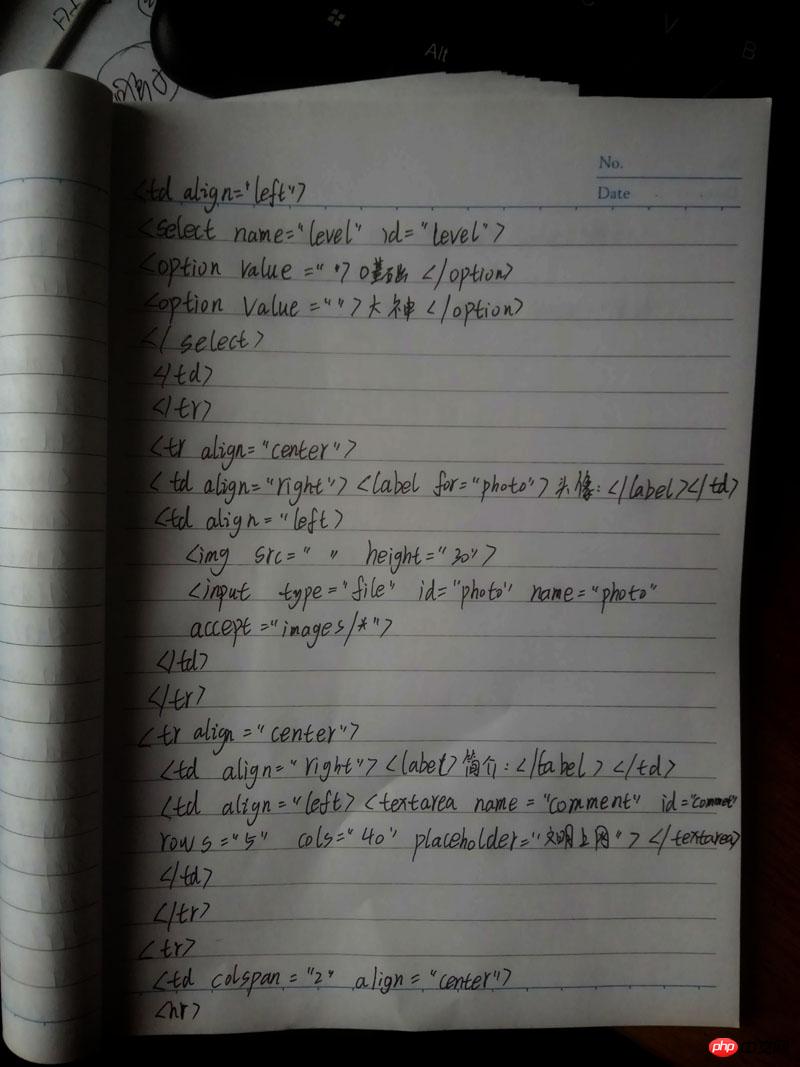 Alt
V
B
No.
Date
<td align="left">
<select name="level" id="level">
<option value=" ">0基础</option>
<option value="">大神</option>
</select>
</td>
</tr>
<tr align="center">
<td align="right"><label for="photo">头像:</label></td>
<td align="left>
<img src=" " height="30">
<input type="file" id="photo" name="photo"
accept="images/*">
</td>
</tr>
<tr align="center">
<td align="right"><label>简介:</label></td>
<td align="left><textarea name="comment" id="commet"
rows="5" cols="40" placeholder="文明上网"></textarea>
</td>
</tr>
<tr>
<td colspan="2" align="center">
<hr>
php中文网